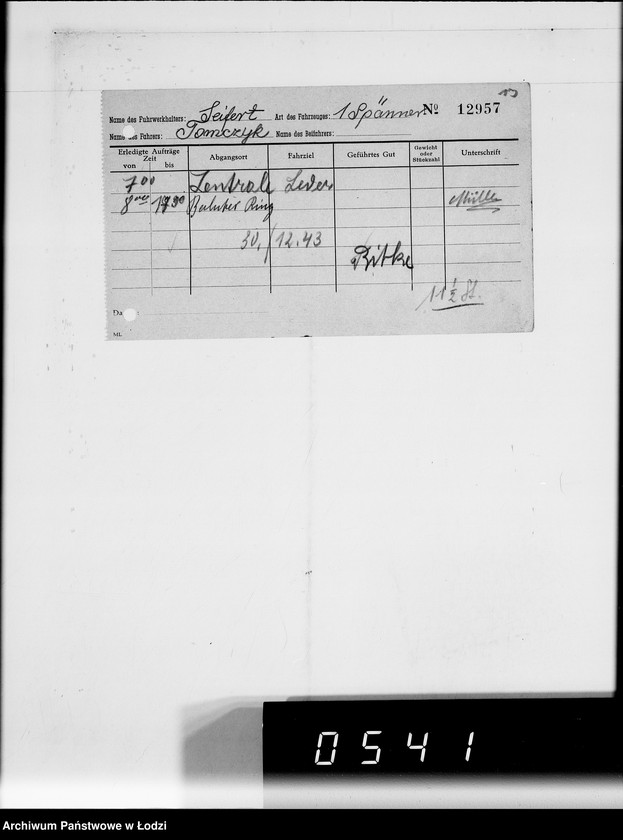 13
Name des Fuhrwerkhalters: Seifert Art des Fahrzeuges: 1 Spänner No 12957
Name des Fahrers: Tomczyk Name des Beifahrers:
Erledigte Aufträge Zeit von bis Abgangsort Fahrziel Geführtes Gut Gewicht oder Stückzahl Unterschrift
7 00 Zentrale Leder
8 00 Baluter Ring Müller
30./12.43
Ritke
11 1/2 St.
Da
ML
0541
Archiwum Państwowe w Łodzi